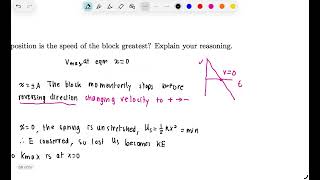 position is the speed of the block greatest? Explain your reasoning.
Vmax at eqm x=0
v
v=0
t
x=±A The block momentarily stops before
reversing direction changing velocity to + → −
x=0, the spring is unstretched, Us=½kx² = min
∴ E conserved, so lost Us becomes KE
Kmax is at x=0